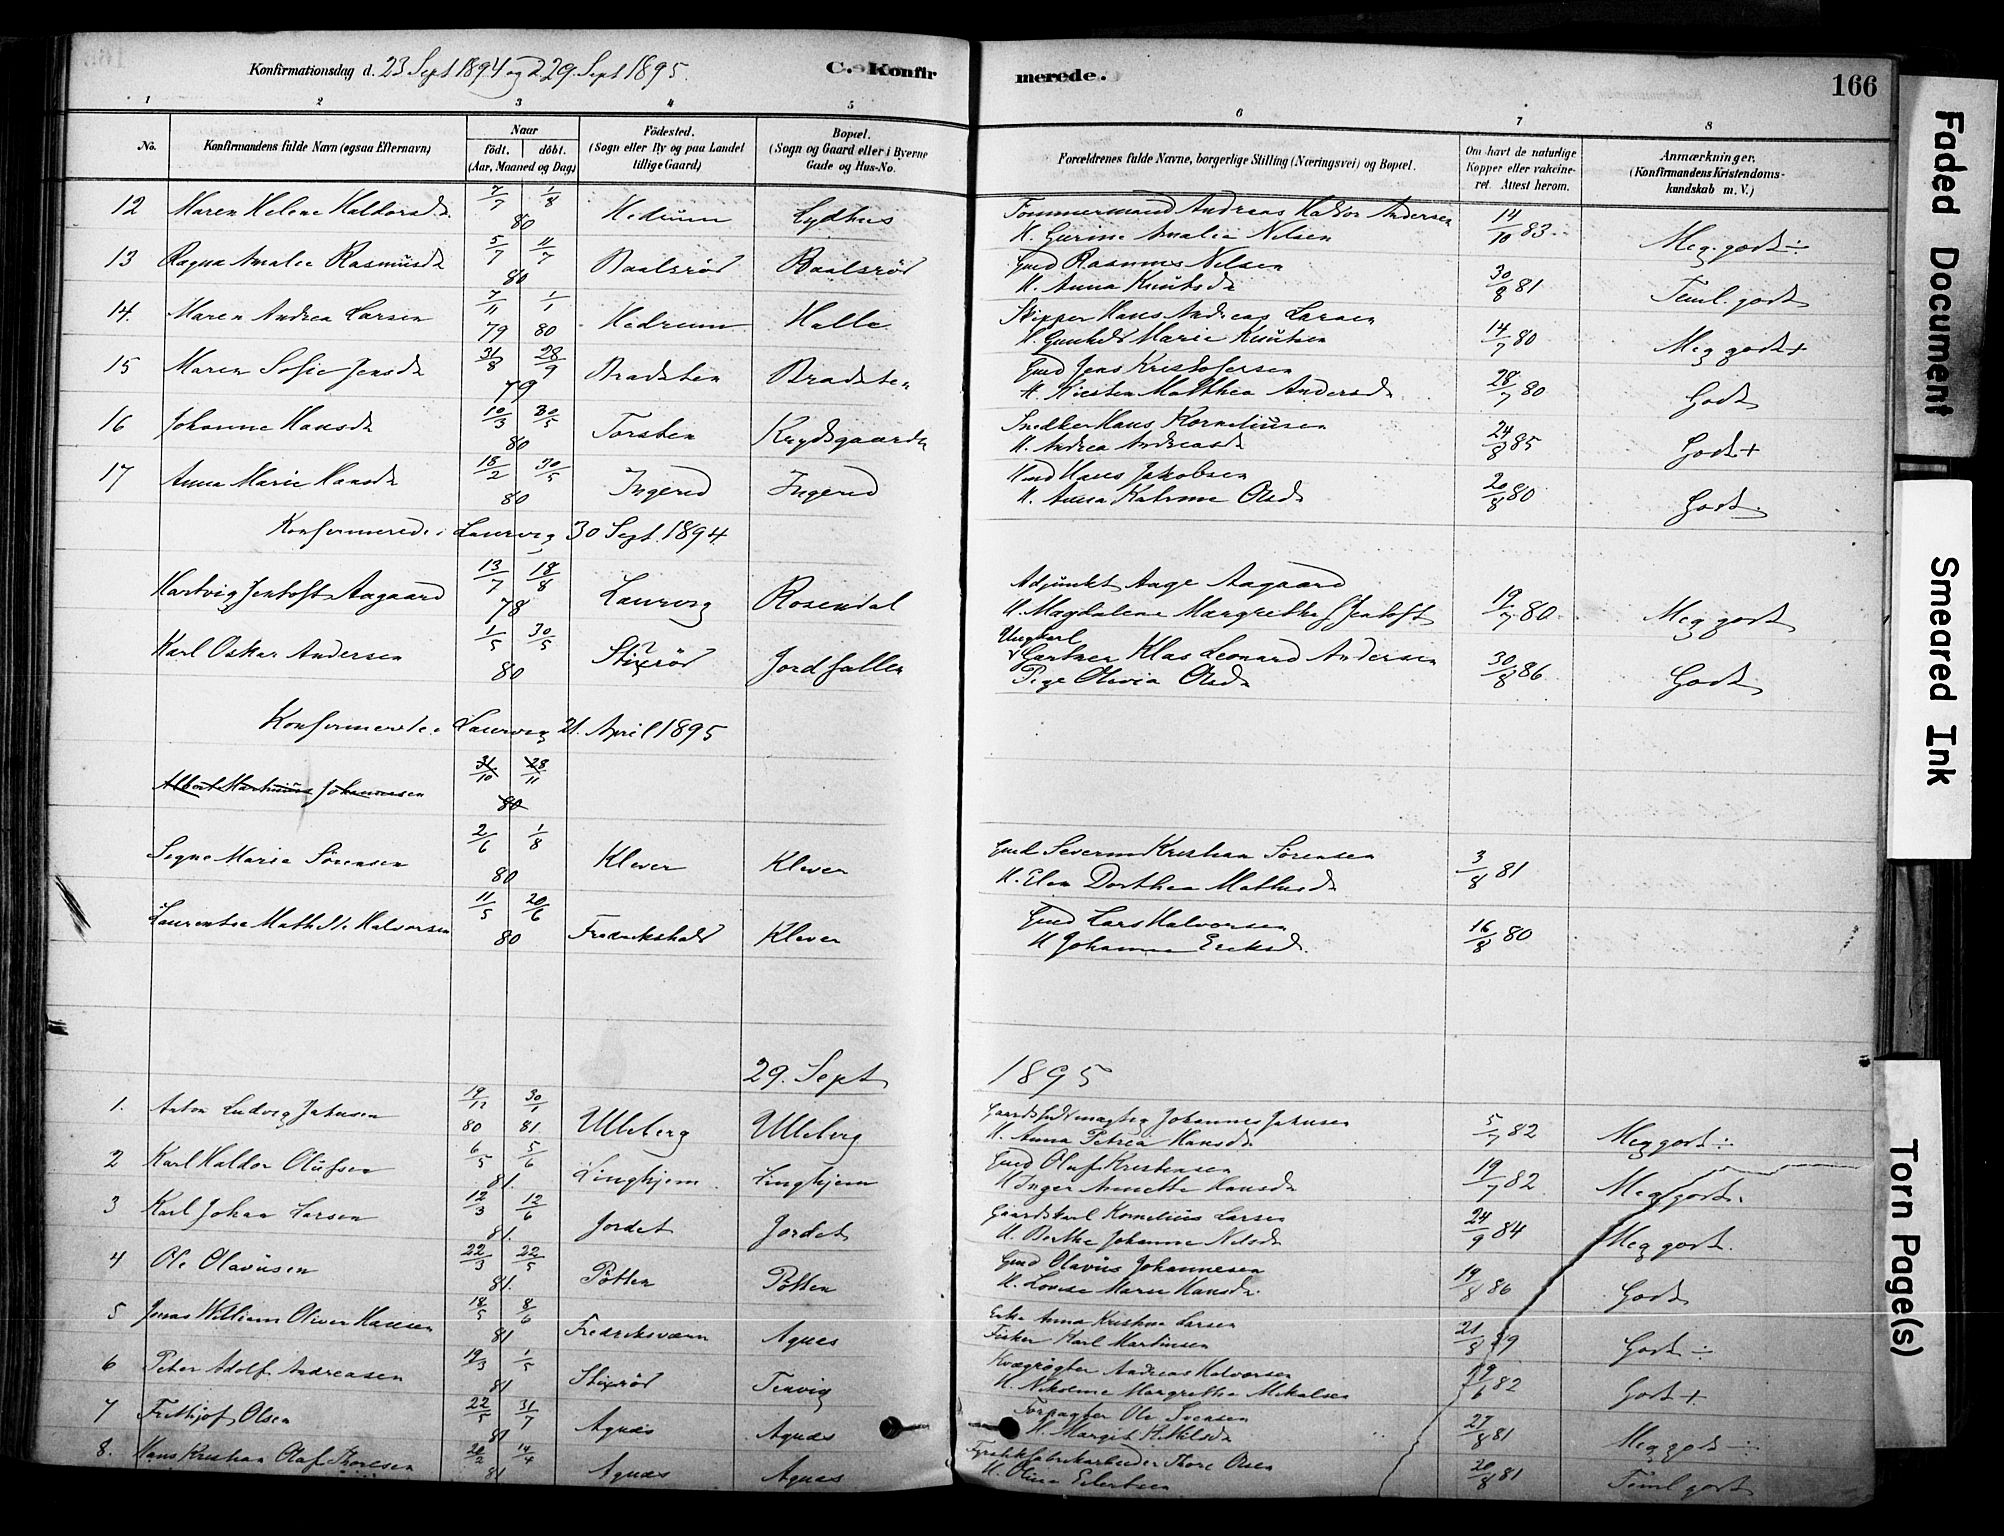 Konfirmationsdag d. 23 Sept 1894 og d 29. Sept 1895.
C. Konfir
merede.
166
1 2 3 4 5 6 7 8
No.
Konfirmandens fulde Navn (ogsaa Efternavn)
Naar
født. døbt.
(Aar, Maaned og Dag)
Fødested.
(Sogn eller By og paa Landet
tillige Gaard)
Bopæl.
(Sogn og Gaard eller i Byerne
Gade og Hus-No.
Forældrenes fulde Navne, borgerlige Stilling (Næringsvei) og Bopæl.
Om havt de naturlige
Kopper eller vakcine-
ret. Attest herom.
Anmærkninger.
(Konfirmandens Kristendoms-
kundskab m. V.)
12 Maren Helene Haldorsd. 7/7 1/8 80 Hedrum Lydhus Tømmermand Andreas Haldor Andersen
H. Gurine Amalie Nilsen 14/10 83. Meg. godt ÷
13 Ragna Amalie Rasmusd. 5/7 11/7 80 Baalsrød Baalsrød Gmd Rasmus Nilsen
H. Anna Knutsd. 30/8 81 Teml. godt
14. Maren Andrea Larsen 7/11 79 1/1 80 Hedrum Halle Skipper Hans Andreas Larsen
H. Gunhild Marie Knutsen 14/7 80 Meg godt +
15 Maren Sofie Jensd. 31/8 28/9 79 Bradsten Bradsten Gmd Jens Kristofersen
H. Kirsten Matthea Andersd. 28/7 80 Godt
16 Johanne Hansd. 10/3 30/5 80 Torsten Krydsgaarden Snedker Hans Korneliusen
H. Andrea Andreasd. 24/8 85 Godt +
17 Anna Marie Hansd. 18/2 30/5 80 Ingerød Ingerød Hmd Hans Jakobsen
H. Anna Katrine Olsd. 20/8 80 Godt.
Konfirmerede i Laurvig 30 Sept. 1894.
Hartvig Jentoft Aagaard 13/7 18/8 78 Laurvig Rosendal Adjunkt Aage Aagaard
H. Magdalene Margrethe Jentoft 19/7 80. Meg godt
Karl Oskar Andersen 1/5 30/5 80 Stixrød Jordfallen Ungkarl
Gartner Klas Leonard Andersen
Pige Olevia Olsd. 30/8 86 Godt
Konfirmerede i Laurvig 21. April 1895
Albert Martinius Johannesen 31/10 28/11 80
Signe Marie Sørensen 2/6 1/8 80 Klever Klever Gmd Severin Kristian Sørensen
H. Elen Dorthea Mathisd. 3/8 81
Laurentse Mathilde Halvorsen 11/5 20/6 80 Fredrikshald Klever Gmd Lars Halvorsen
H Johanne Eriksd. 16/8 80
29. Sept 1895
1. Anton Ludvig Jahnsen 19/12 80 30/1 81. Ulleberg Ulleberg Johannes Jahnsen
H. Anna Petrea Hansd. 5/7 82 Meg godt ÷
2 Karl Haldor Olufsen 6/5 5/6 81. Linghjem. Linghjem Gmd Oluf Kristensen
H Inger Annette Hansd. 19/7 82. Meg godt.
3 Karl Johan Larsen 12/3 12/6 81. Jordet Jordet Gaardskarl Kornelius Larsen
H. Berthe Johanne Nilsd. 24/9 84 Meg godt.
4 Ole Olavusen 22/3 22/5 81. Pøtten Pøtten Gmd Olavus Johannesen
H. Lovise Marie Hansd. 19/8 86 Godt
5 Jonas William Oliver Hansen 18/5 8/6 81 Fredriksværn Agnes Enke Anna Kristine Larsen
Fisker Karl Martinsen 21/8 89 Godt ÷
6 Peter Adolf Andreasen 19/3 1/5 81 Stixrød Tenvig Kvægrøgter Andreas Halvorsen
H. Nikoline Margrethe Mikalsen 22/6 82 Godt +
7 Frithjof Olsen 22/5 31/7 81 Agnes Agnes Forpagter Ole Svensen
H. Margit Kittilsd. 27/8 81 Meg godt ÷
8. Hans Kristian Olaf Thoresen 20/2 14/4 81 Agnes Agnes Fyrstikfabrikarbeider Thore Olsen
H. Olina Eilertsen 20/8 81 Teml godt
Faded Document
Smeared Ink
Torn Page(s)